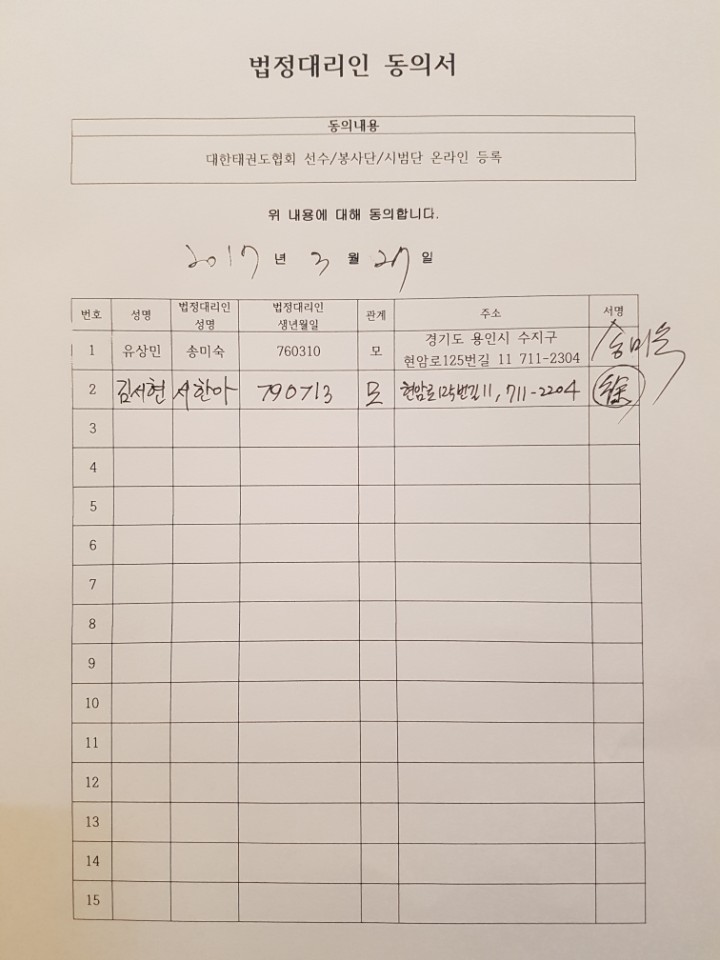 법정대리인 동의서
동의내용
대한태권도협회 선수/봉사단/시범단 온라인 등록
위 내용에 대해 동의합니다.
2017 년 3 월 27 일
번호 성명 법정대리인 성명 법정대리인 생년월일 관계 주소 서명
1 유상민 송미숙 760310 모 경기도 용인시 수지구 현암로125번길 11 711-2304
2 김서현 서한아 790713 모 현암로125번길11, 711-2204 徐
3
4
5
6
7
8
9
10
11
12
13
14
15